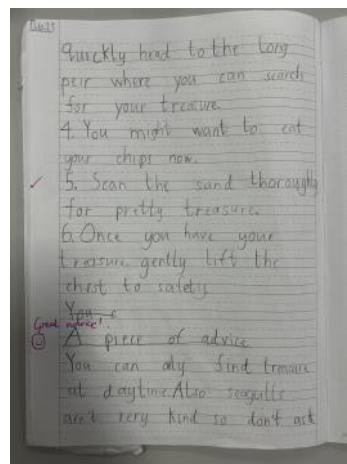 quickly head to the long
peir where you can search
for your treasure.
4. You might want to eat
your chips now.
5. Scan the sand thoroughly
for pretty treasure.
6. Once you have your
treasure gently lift the
chest to safety
You
Great advice!
A piece of advice
You can only find treasure
at daytime. Also seagulls
aren't very kind so don't ask